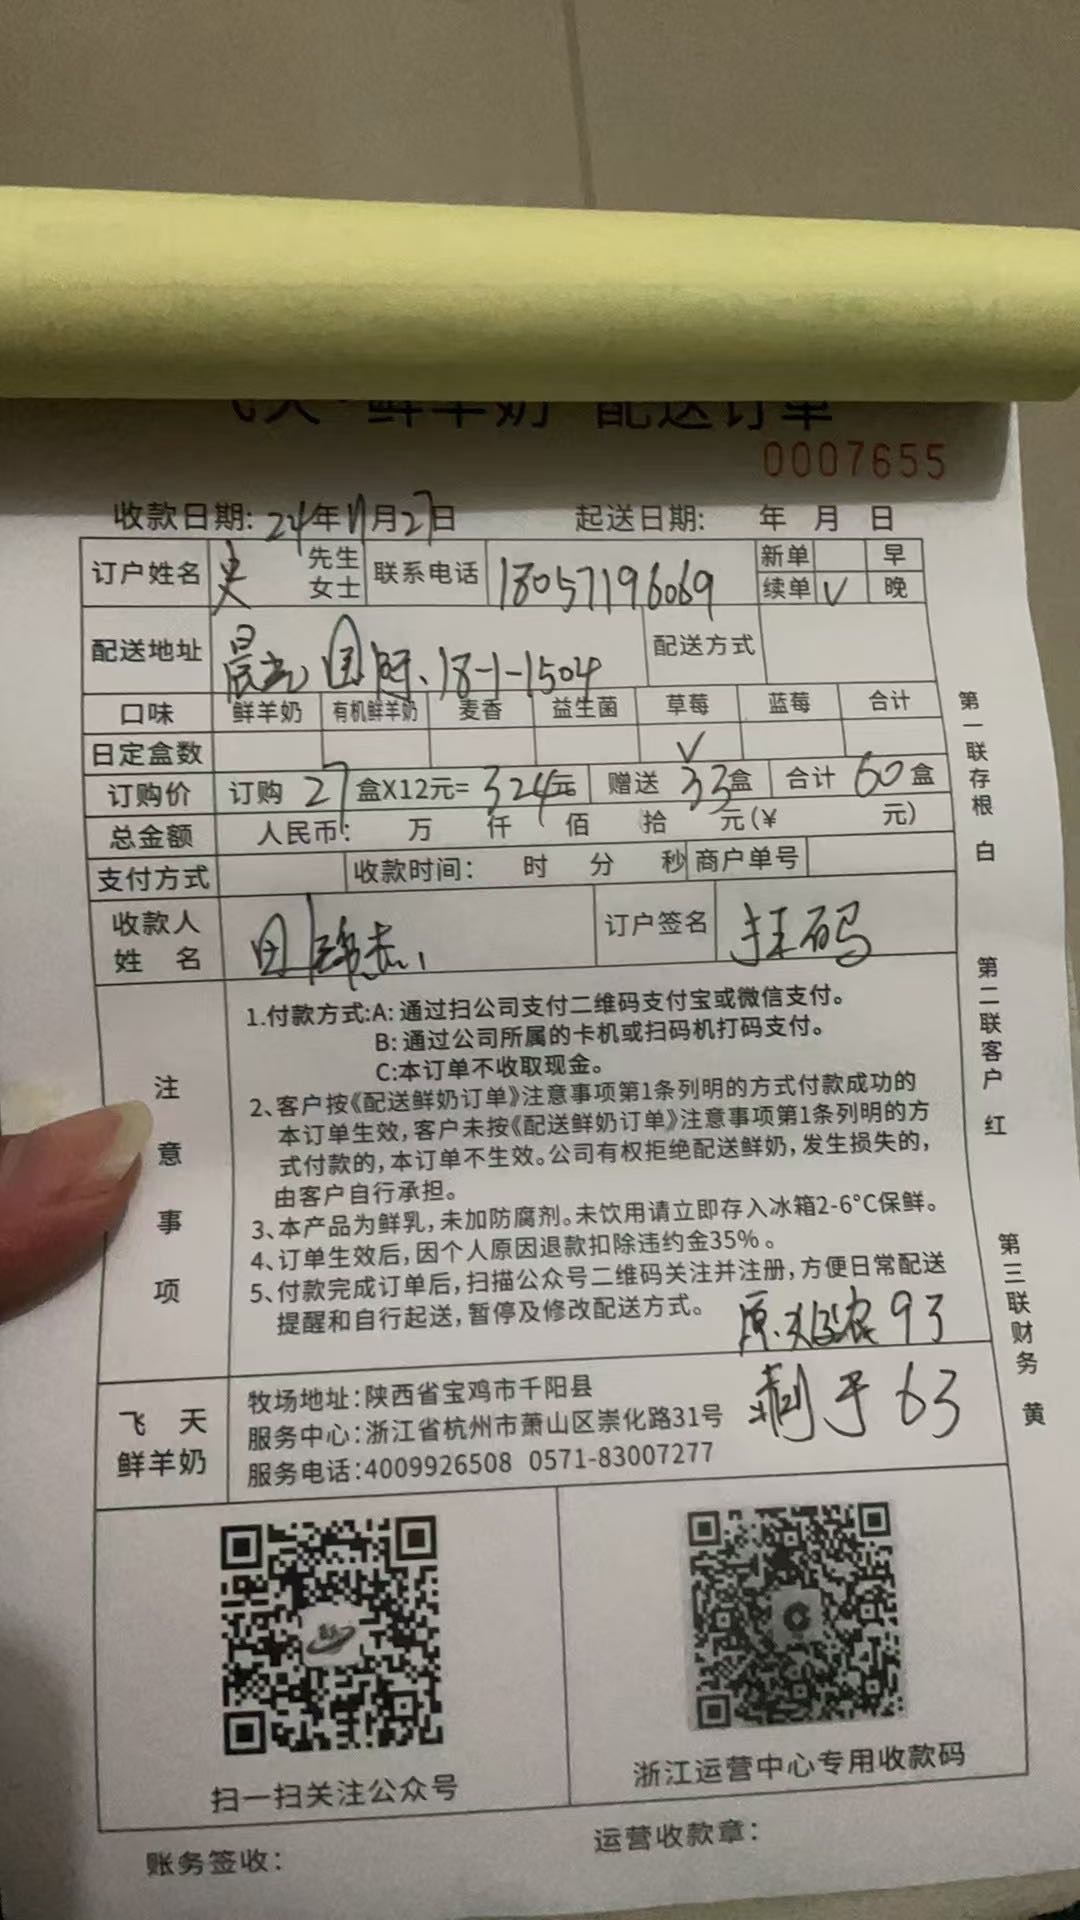 飞天·鲜羊奶 配送订单
0007655
收款日期: 24年11月27日 起送日期: 年 月 日
订户姓名 史 先生 女士 联系电话 18057196069 新单 早
续单 V 晚
配送地址 晨光国际、18-1-1504 配送方式
口味 鲜羊奶 有机鲜羊奶 麦香 益生菌 草莓 蓝莓 合计
日定盒数 V
订购价 订购 27 盒X12元= 324元 赠送 33盒 合计 60盒
总金额 人民币: 万 仟 佰 拾 元(¥ 元)
支付方式 收款时间: 时 分 秒 商户单号
收款人姓名 订户签名 扫码
注意事项
1.付款方式:A: 通过扫公司支付二维码支付宝或微信支付。
B: 通过公司所属的卡机或扫码机打码支付。
C:本订单不收取现金。
2、客户按《配送鲜奶订单》注意事项第1条列明的方式付款成功的
本订单生效,客户未按《配送鲜奶订单》注意事项第1条列明的方
式付款的,本订单不生效。公司有权拒绝配送鲜奶,发生损失的,
由客户自行承担。
3、本产品为鲜乳,未加防腐剂。未饮用请立即存入冰箱2-6°C保鲜。
4、订单生效后,因个人原因退款扣除违约金35%。
5、付款完成订单后,扫描公众号二维码关注并注册,方便日常配送
提醒和自行起送,暂停及修改配送方式。
原 93
剩于63
飞天鲜羊奶
牧场地址:陕西省宝鸡市千阳县
服务中心:浙江省杭州市萧山区崇化路31号
服务电话:4009926508 0571-83007277
扫一扫关注公众号
浙江运营中心专用收款码
账务签收:
运营收款章:
第一联存根 白
第二联客户 红
第三联财务 黄